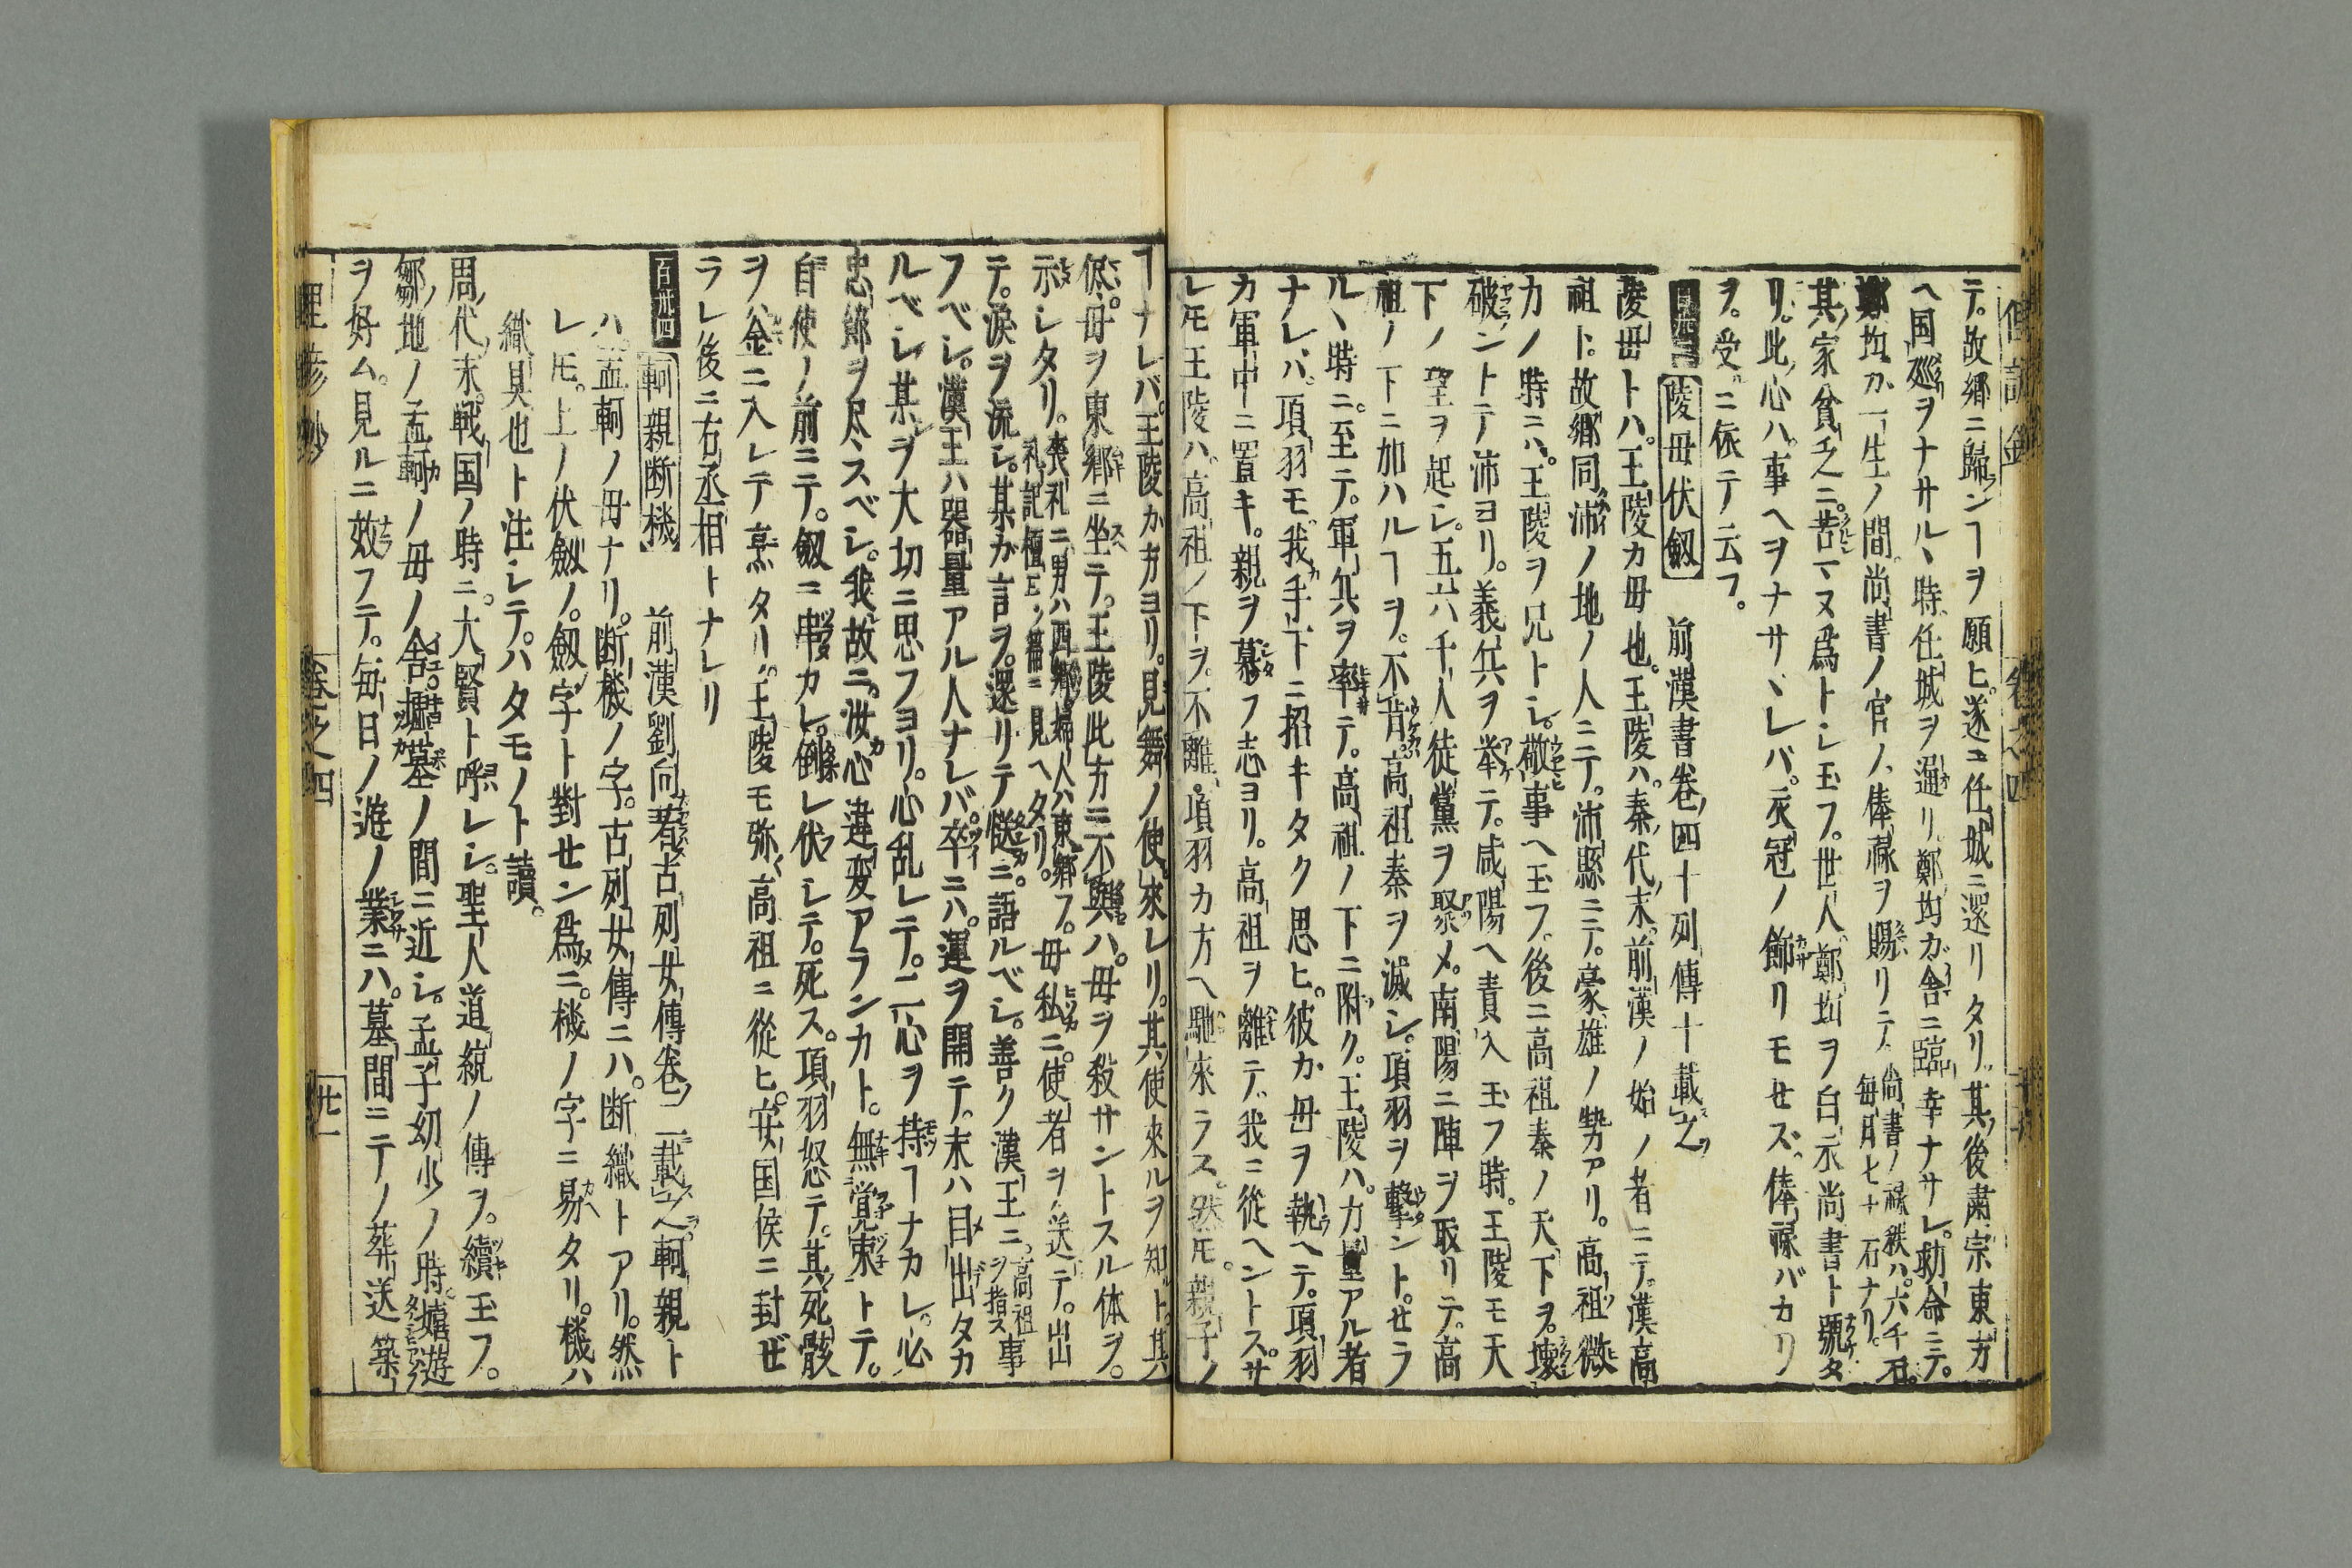 テ。故郷ニ歸ンヿヲ願ヒ。遂ニ任城ニ還リタリ。其後肅宗東方
ヘ国廵ヲナサル、時。任城ヲ通リ。鄭均ガ舎ニ臨幸ナサレ。勅命ニテ。
鄭均カ一生ノ間。尚書ノ官ノ俸禄ヲ賜リニテ。尚書ノ禄秩ハ。六千石。
毎月七十石ナリ。
其家貧乏ニ。苦マヌ爲トシ玉フ。世人鄭均ヲ白衣尚書ト號タ
リ。此心ハ。事ヘヲナサ、レバ。衣冠ノ飾リモせズ。俸禄バカリ
ヲ。受ニ依テ云フ。
陵母伏劔 前漢書卷四十列傳十載之
陵毋トハ。王陵カ毋也。王陵ハ。秦代末。前漢ノ始ノ者ニテ。漢高
祖ト。故郷同沛ノ地ノ人ニテ。沛縣ニテ。豪雄ノ勢アリ。高祖微
カノ時ニハ。王陵ヲ兄トシ。敬事ヘ玉フ。後ニ高祖秦ノ天下ヲ。壊
破ントテ沛ヨリ。義兵ヲ挙テ。咸陽ヘ責入玉フ時。王陵モ天
下ノ望ヲ起シ。五六千人徒黨ヲ聚メ。南陽ニ陣ヲ取リテ。高
祖ノ下ニ加ハルヿヲ。不肯。高祖秦ヲ滅シ。項羽ヲ撃ント。せラ
ル、時ニ。至テ。軍兵ヲ率テ。高祖ノ下ニ附ク。王陵ハ。力量アル者
ナレバ。項羽モ我手下ニ招キタク思ヒ。彼カ毋ヲ執ヘテ。項羽
カ軍中ニ置キ。親ヲ慕フ志ヨリ。高祖ヲ離テ。我ニ從ヘントス。サ
レ𪜈王陵ハ。高祖ノ下ヲ。不離。項羽カ方ヘ馳來ラス。然𪜈。親子ノ
ヿナレバ。王陵カ方ヨリ。見舞ノ使來レリ。其使來ルヲ知ト。其
低。毋ヲ東郷ニ坐テ。王陵此方ニ不與ハ。毋ヲ殺サントスル体ヲ。
示レタリ。喪礼ニ男ハ西郷婦人ハ東郷フ。
礼記檀弓ノ篇ニ見ヘタリ。毋私ニ。使者ヲ送テ。出
テ。涙ヲ流シ。某カ言ヲ。還リテ慥ニ。語ルベシ。善ク漢王ニ高祖ヲ指ス事
フベシ。漢王ハ器量アル人ナレバ。卒ニハ。運ヲ開テ。末ハ目出タカ
ルベシ某ヲ大切ニ思フヨリ。心乱レテ。二心ヲ持ヿナカレ。心
忠節ヲ尽スベシ。我故ニ。汝心違変アランカト。無覚束トテ。
自使ノ前ニテ。劔ニ串カレ。倒レ伏シテ。死ス。項羽怒テ。其死骸
ヲハ釜ニ入レテ烹タリ。王陵モ弥高祖ニ從ヒ。安国侯ニ封ぜ
ラレ後ニ右丞相トナレリ
百卅四 軻親断機 前漢劉向著古列女傳卷一載之軻親ト
ハ。孟軻ノ毋ナリ。断機ノ字。古列女傳ニハ。断織トアリ。然
レ𪜈。上ノ伏劔ノ。劔字ト對せン爲ニ。機ノ字ニ易タリ。機ハ
織具也ト注シテ。ハタモノト讀。
周代末。戦国ノ時ニ。大賢ト呼レシ。聖人道統ノ傳ヲ。續玉フ。
鄒地ノ孟軻ノ毋ノ舎。墟墓ノ間ニ近シ。孟子幼少ノ時。嬉遊
ヲ好ム。見ルニ效フテ。毎日ノ遊ノ業ニハ。墓間ニテノ葬送築
卷之四